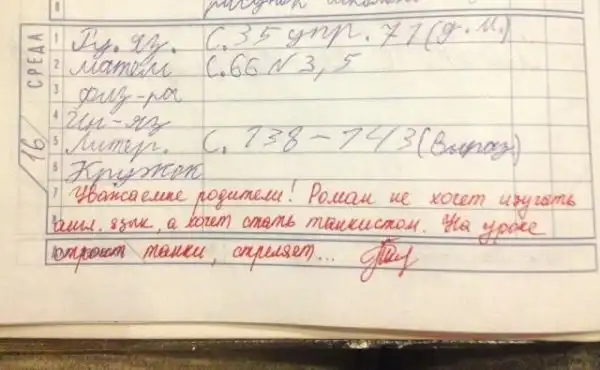 рисунок
СРЕДА
16
1 Ру. яз. С. 35 упр. 71 (д. м.)
2 матем С. 66 N 3, 5
3 физ-ра
4 Ин-яз
5 Литер. С. 138-143 (Выраз)
6 Кружок
7 Уважаемые родители! Роман не хочет изучать
8 англ. язык, а хочет стать танкистом. На уроке
строит танки, стреляет...